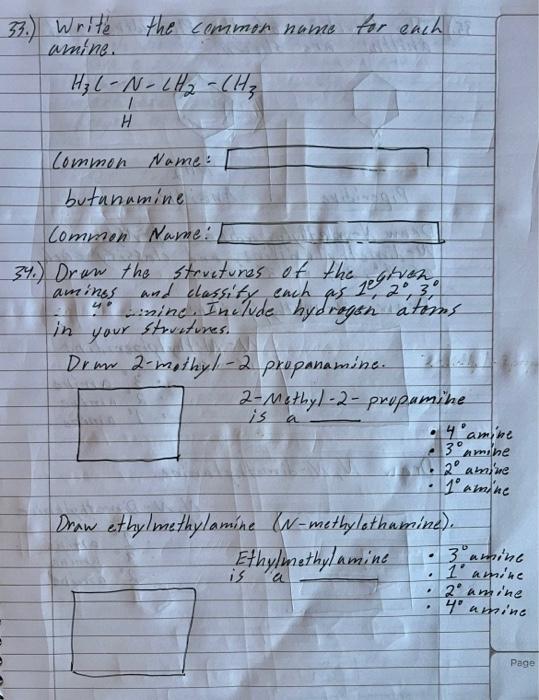 33.) Write the common name for each
amine.
H3C-N-CH2-CH3
|
H
Common Name:
butanamine
Common Name:
34.) Draw the structures of the given
amines and classify each as 1°, 2°, 3°
4° amine. Include hydrogen atoms
in your structures.
Draw 2-methyl-2 propanamine.
2-Methyl-2-propamine
is a ____
• 4° amine
• 3° amine
• 2° amine
• 1° amine
Draw ethylmethylamine (N-methylethamine).
Ethylmethylamine
is a ____
• 3° amine
• 1° amine
• 2° amine
• 4° amine
Page